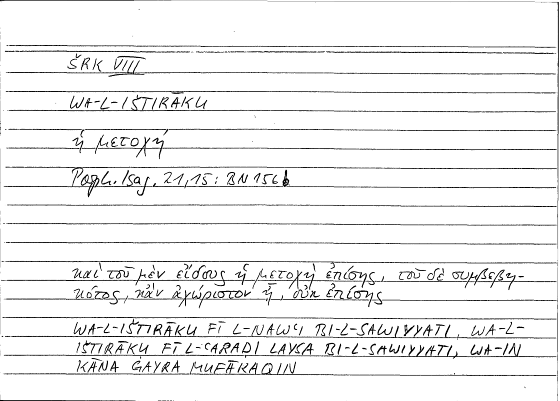 ŠRK VIII
WA-L-IŠTIRĀKU
ἡ μετοχή
Porph. Isag. 21,15: BN 156b
καὶ τοῦ μὲν εἴδους ἡ μετοχὴ ἐπίσης, τοῦ δὲ συμβεβη-
κότος, κἂν ἀχώριστον ᾖ, οὐκ ἐπίσης
WA-L-IŠTIRĀKU FĪ L-NAWʿI BI-L-SAWIYYATI, WA-L-
IŠTIRĀKU FĪ L-ʿARAḌI LAYSA BI-L-SAWIYYATI, WA-IN
KĀNA ĠAYRA MUFĀRAQIN